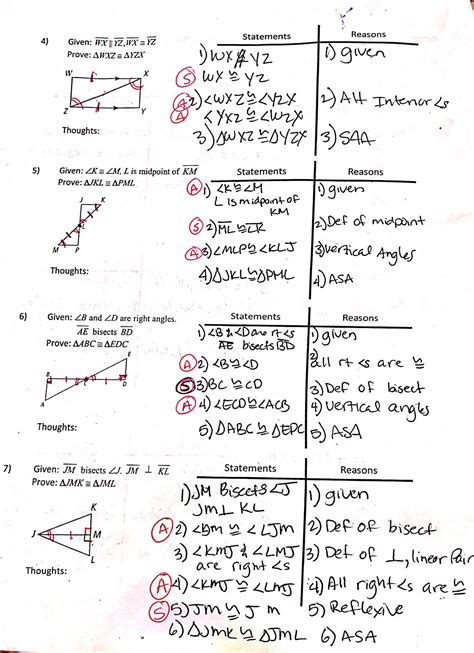 4) Given: WX ∥ YZ, WX ≅ YZ
Prove: ΔWXZ ≅ ΔYZX
W X
Z Y
Thoughts:
Statements Reasons
1) WX ∥ YZ 1) given
S WX ≅ YZ
A 2) <WXZ ≅ <YZX 2) Alt Interior <s
A <YXZ ≅ <WZX
3) ΔWXZ ≅ ΔYZX 3) SAA
5) Given: ∠K ≅ ∠M, L is midpoint of KM
Prove: ΔJKL ≅ ΔPML
J K
L
M P
Thoughts:
Statements Reasons
A 1) <K ≅ <M 1) given
L is midpoint of
KM
S 2) ML ≅ LK 2) Def of midpoint
A 3) <MLP ≅ <KLJ 3) Vertical Angles
4) ΔJKL ≅ ΔPML 4) ASA
6) Given: ∠B and ∠D are right angles.
AE bisects BD
Prove: ΔABC ≅ ΔEDC
E
A
Thoughts:
Statements Reasons
1) <B & <D are rt <s 1) given
AE bisects BD
A 2) <B ≅ <D 2) all rt <s are ≅
S 3) BC ≅ CD 3) Def of bisect
A 4) <ECD ≅ <ACB 4) Vertical angles
5) ΔABC ≅ ΔEDC 5) ASA
7) Given: JM bisects ∠J. JM ⊥ KL
Prove: ΔJMK ≅ ΔJML
K
J M
L
Thoughts:
Statements Reasons
1) JM Bisects <J 1) given
JM ⊥ KL
A 2) ≅ <LJM 2) Def of bisect
3) <KMJ & <LMJ 3) Def of ⊥, linear Pair
are right <s
A 4) <KMJ ≅ <LMJ 4) All right <s are ≅
S 5) JM ≅ JM 5) Reflexive
6) ΔJMK ≅ ΔJML 6) ASA